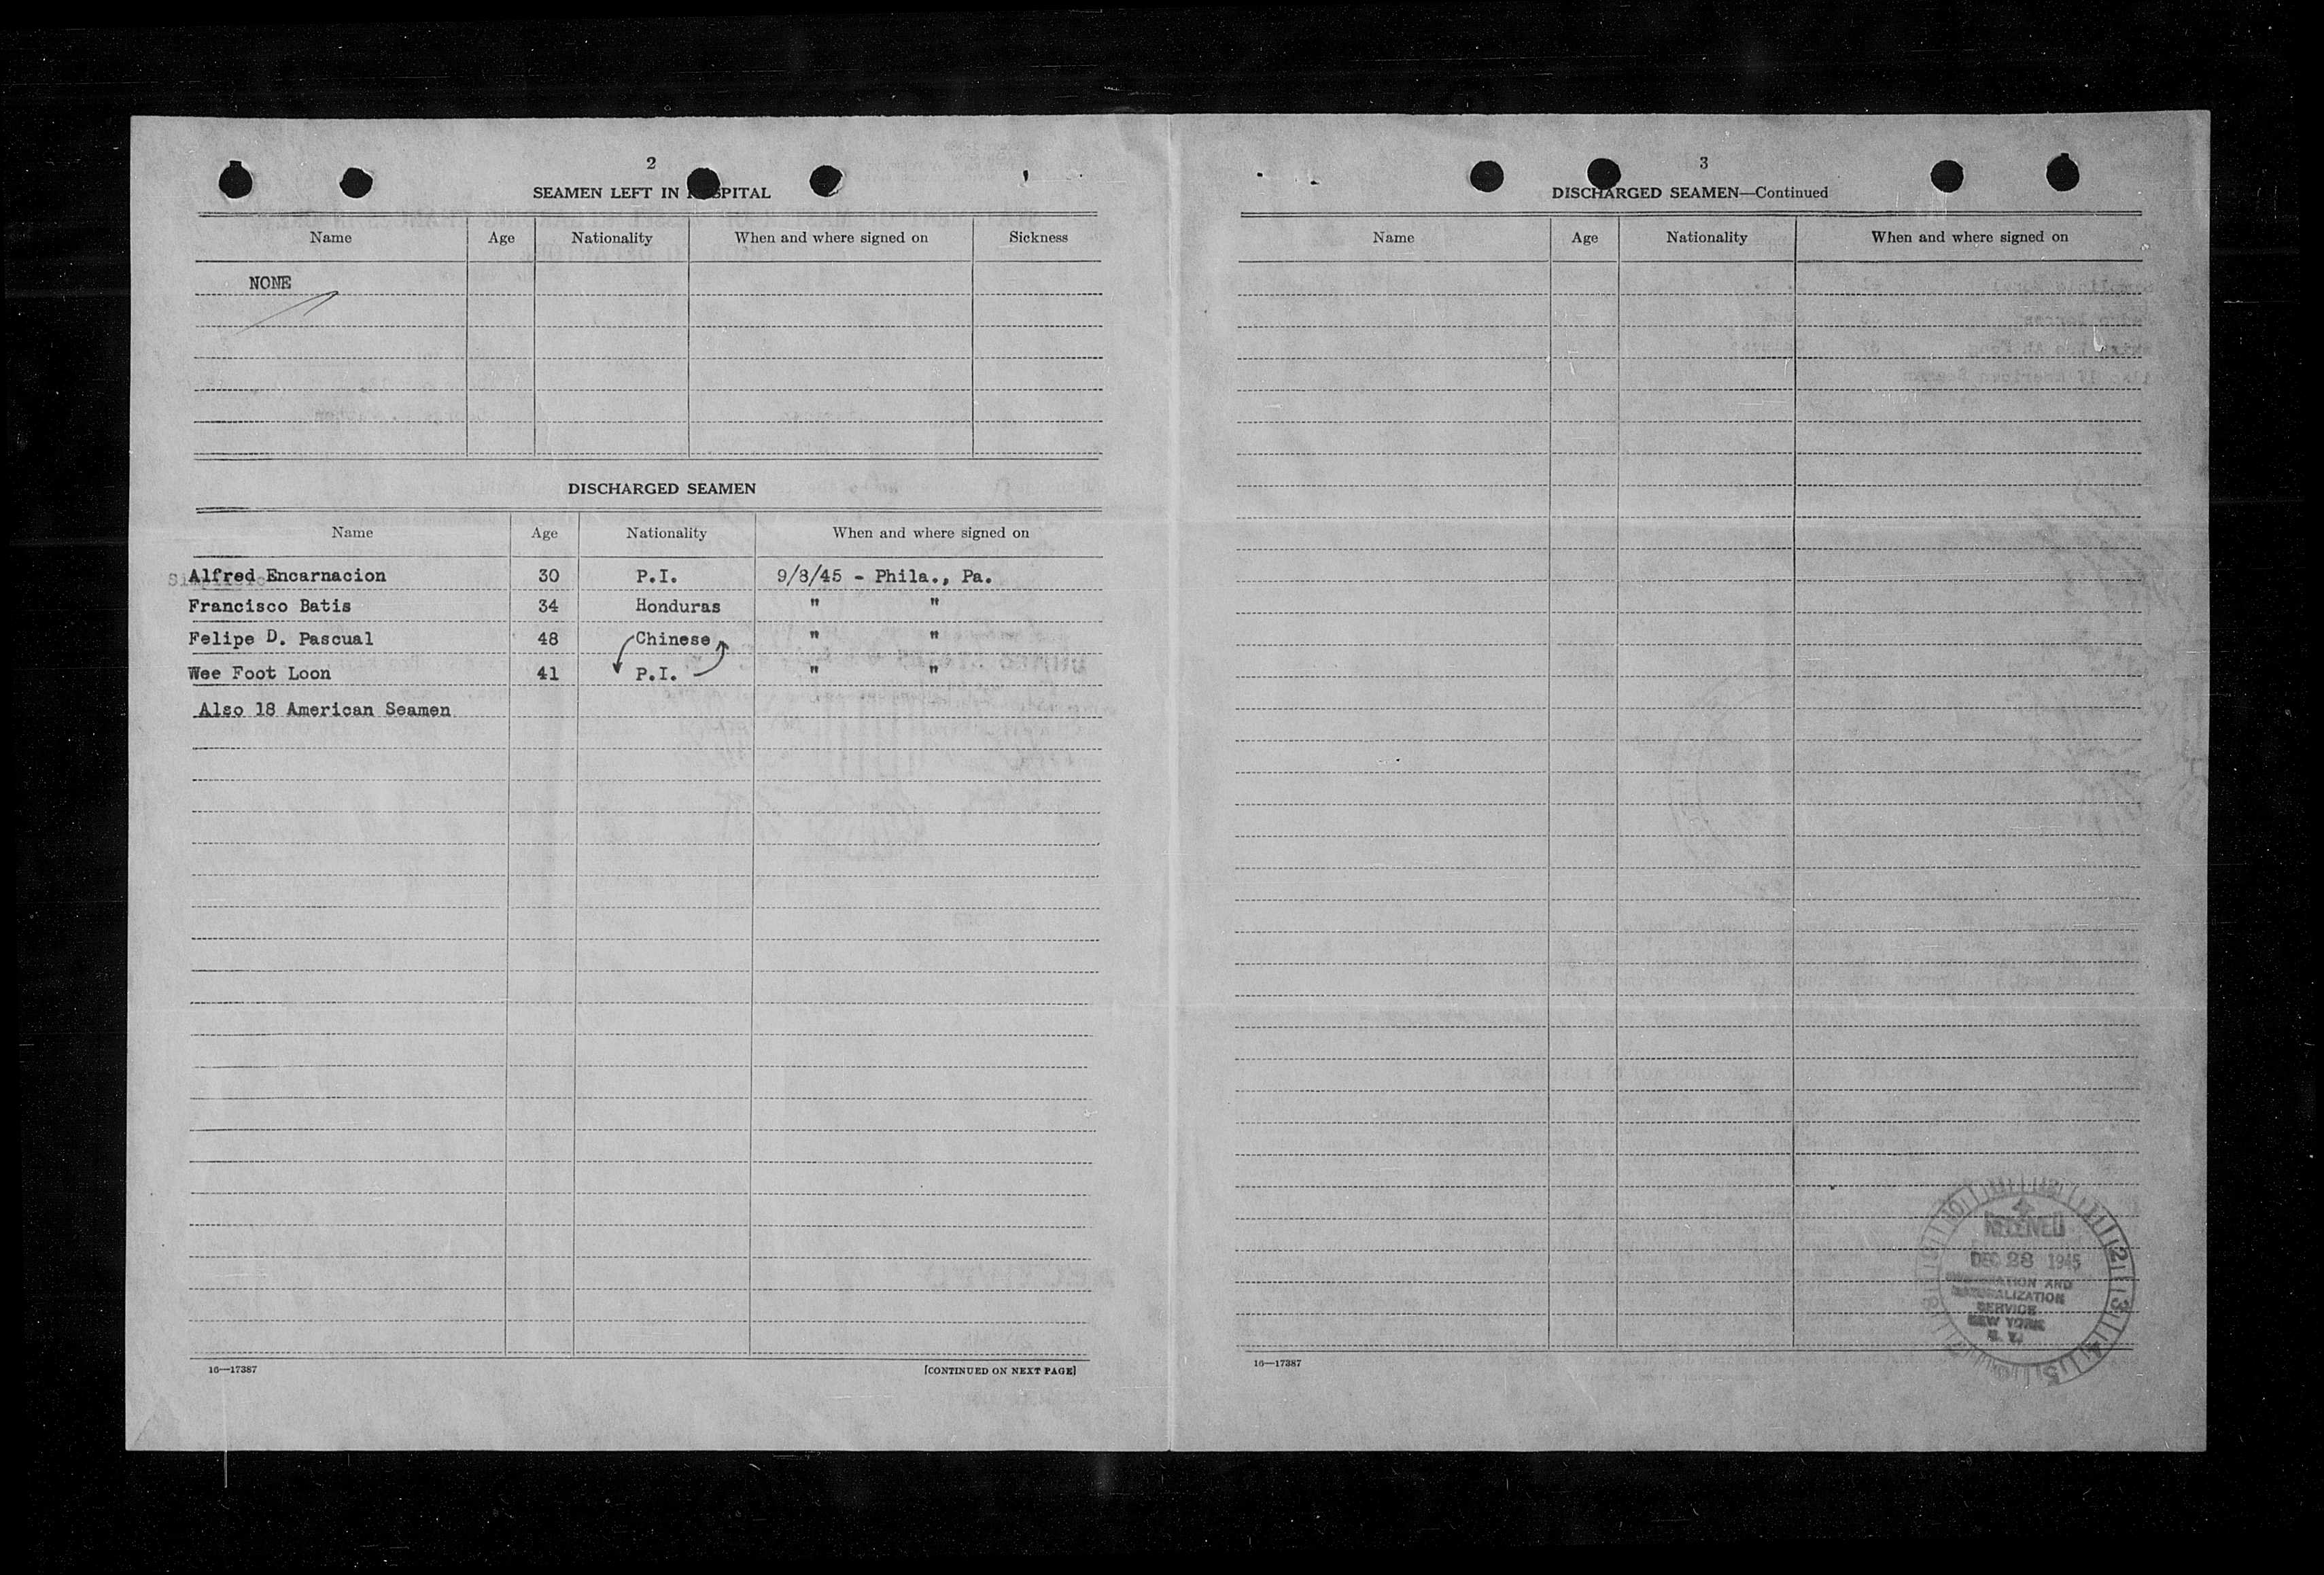 2
SEAMEN LEFT IN HOSPITAL
Name Age Nationality When and where signed on Sickness
NONE
DISCHARGED SEAMEN
Name Age Nationality When and where signed on
Alfred Encarnacion 30 P.I. 9/8/45 - Phila., Pa.
Francisco Batis 34 Honduras " "
Felipe D. Pascual 48 Chinese " "
Wee Foot Loon 41 P.I. " "
Also 18 American Seamen
16—17387 [CONTINUED ON NEXT PAGE]
3
DISCHARGED SEAMEN—Continued
Name Age Nationality When and where signed on
RECEIVED
DEC 28 1945
IMMIGRATION AND
NATURALIZATION
SERVICE
NEW YORK
N. Y.
16—17387